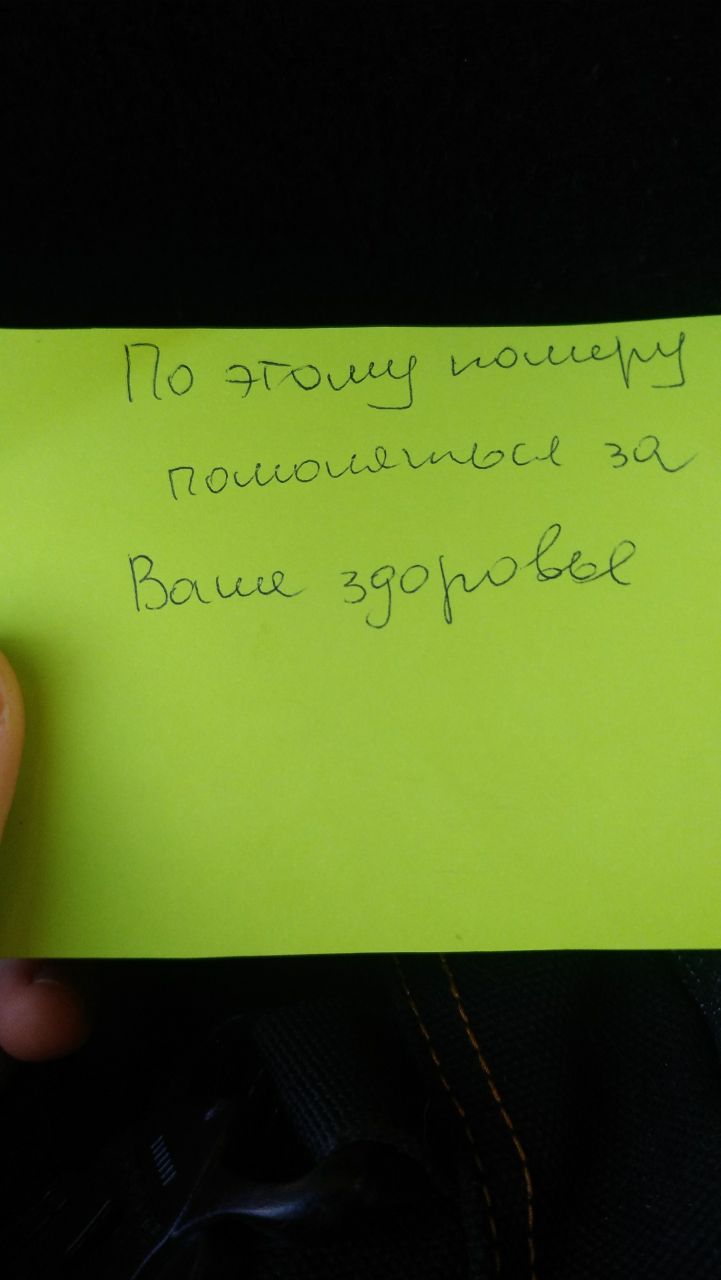 По этому номеру
помоляться за
Ваше здоровье